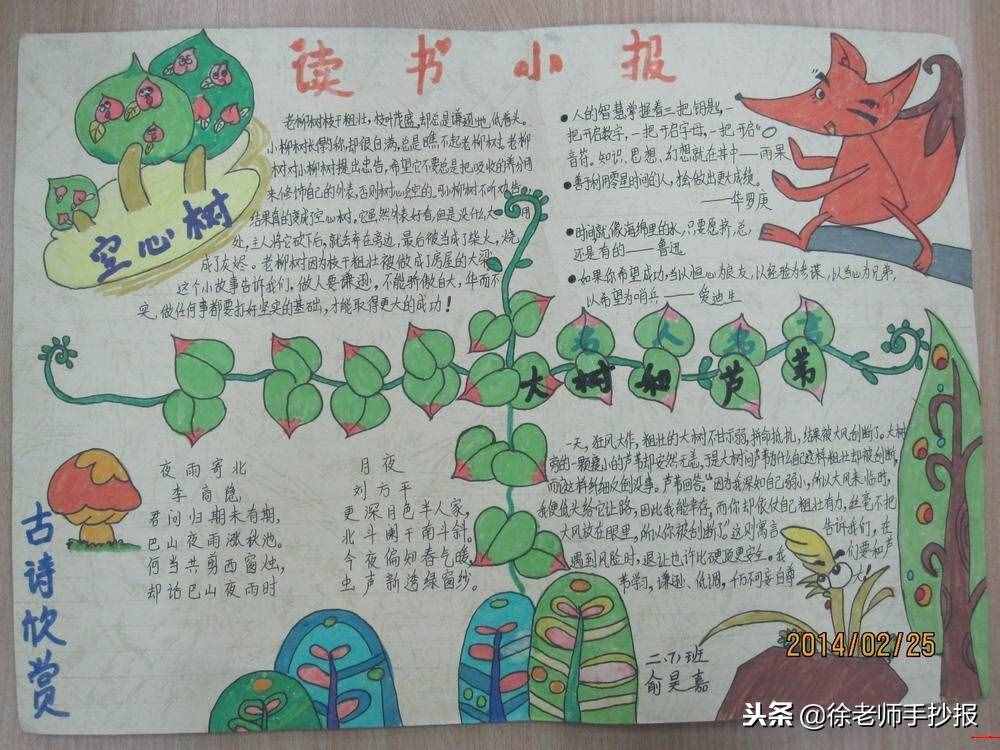 读书小报
空心树
老柳树枝干粗壮,枝叶茂盛,却总是谦逊地低着头。
小柳树长得
却很自满,总是瞧不起老柳树。老柳
树对小柳树提出忠告,希望它不要总是把吸收的养分用
来修饰自己的外表,否则树心会空的。可小柳树不听劝告,
结果真的变成了空心树。它虽然外表好看,但是没什么大用
处,主人将它砍下后,就去弃在旁边,最后被当成了柴火,烧
成了灰烬。老柳树因为枝干粗壮被做成了房屋的大梁。
这个小故事告诉我们,做人要谦逊,不能骄傲自大,华而不
实,做任何事都要打好坚实的基础,才能取得更大的成功!
人的智慧掌握着三把钥匙,一
把开启数字,一把开启字母,一把开启
音符。知识、思想、幻想就在其中——雨果
善于利用零星时间的人,会做出更大成绩。
——华罗庚
时间就像海绵里的水,只要愿挤,总
还是有的——鲁迅
如果你希望成功,当以恒心为良友,以经验为参谋,以当心为兄弟,
以希望为哨兵——爱迪生
名人名言
大树和芦苇
一天,狂风大作,粗壮的大树不甘示弱,拼命抵抗,结果被大风刮断了。大树
旁的一颗瘦小的芦苇却安然无恙,于是大树问芦苇为什么自己这样粗壮却被刮断,
而这样纤细却没事。芦苇回答:“因为我深知自己弱小,所以大风来临时,
我便低头给它让路,因此我能幸存,而你却依仗自己粗壮有力,丝毫不把
大风放在眼里,所以你被刮断了。”这则寓言告诉我们,在
遇到风险时,退让也许比硬顶更安全。我们要和芦
苇学习,谦逊、低调,千万不要自尊
大!
古诗欣赏
夜雨寄北
李商隐
君问归期未有期,
巴山夜雨涨秋池。
何当共剪西窗烛,
却话巴山夜雨时
月夜
刘方平
更深月色半人家,
北斗阑干南斗斜。
今夜偏知春气暖,
虫声新透绿窗纱。
二.(7)班
俞昊嘉
2014/02/25
头条 @徐老师手抄报